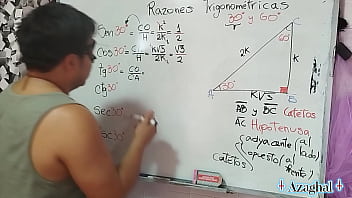 Razones Trigonométricas
30° y 60°
Sen30° = CO/H = K/2K = 1/2
Cos30° = CA/H = K√3/2K = √3/2
tg30° = CO/CA =
Ctg30°
Sec30°
Csc30°
C
60°
2K
K
A
30°
B
K√3
AB y BC Catetos
AC Hipotenusa
Catetos
(adyacente (al lado)
opuesto (al frente)
Azaghal